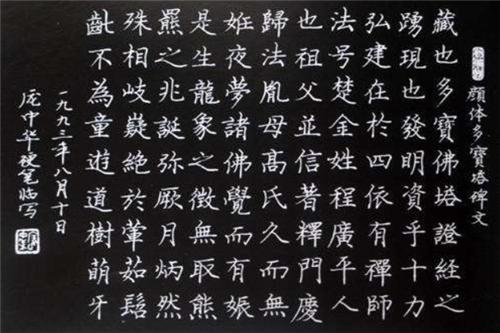 顔体多寶塔碑文
藏也多寶佛塔證經之
踴現也發明資乎十力
弘建在於四依有禪師
法号楚金姓程廣平人
也祖父並信著釋門慶
歸法胤母髙氏久而無
姙夜夢諸佛覺而有娠
是生龍象之徵無取熊
羆之兆誕弥厥月炳然
殊相岐嶷絕於葷茹髫
齔不為童遊道樹萌牙
一九九三年八月十日
庞中华硬笔临写